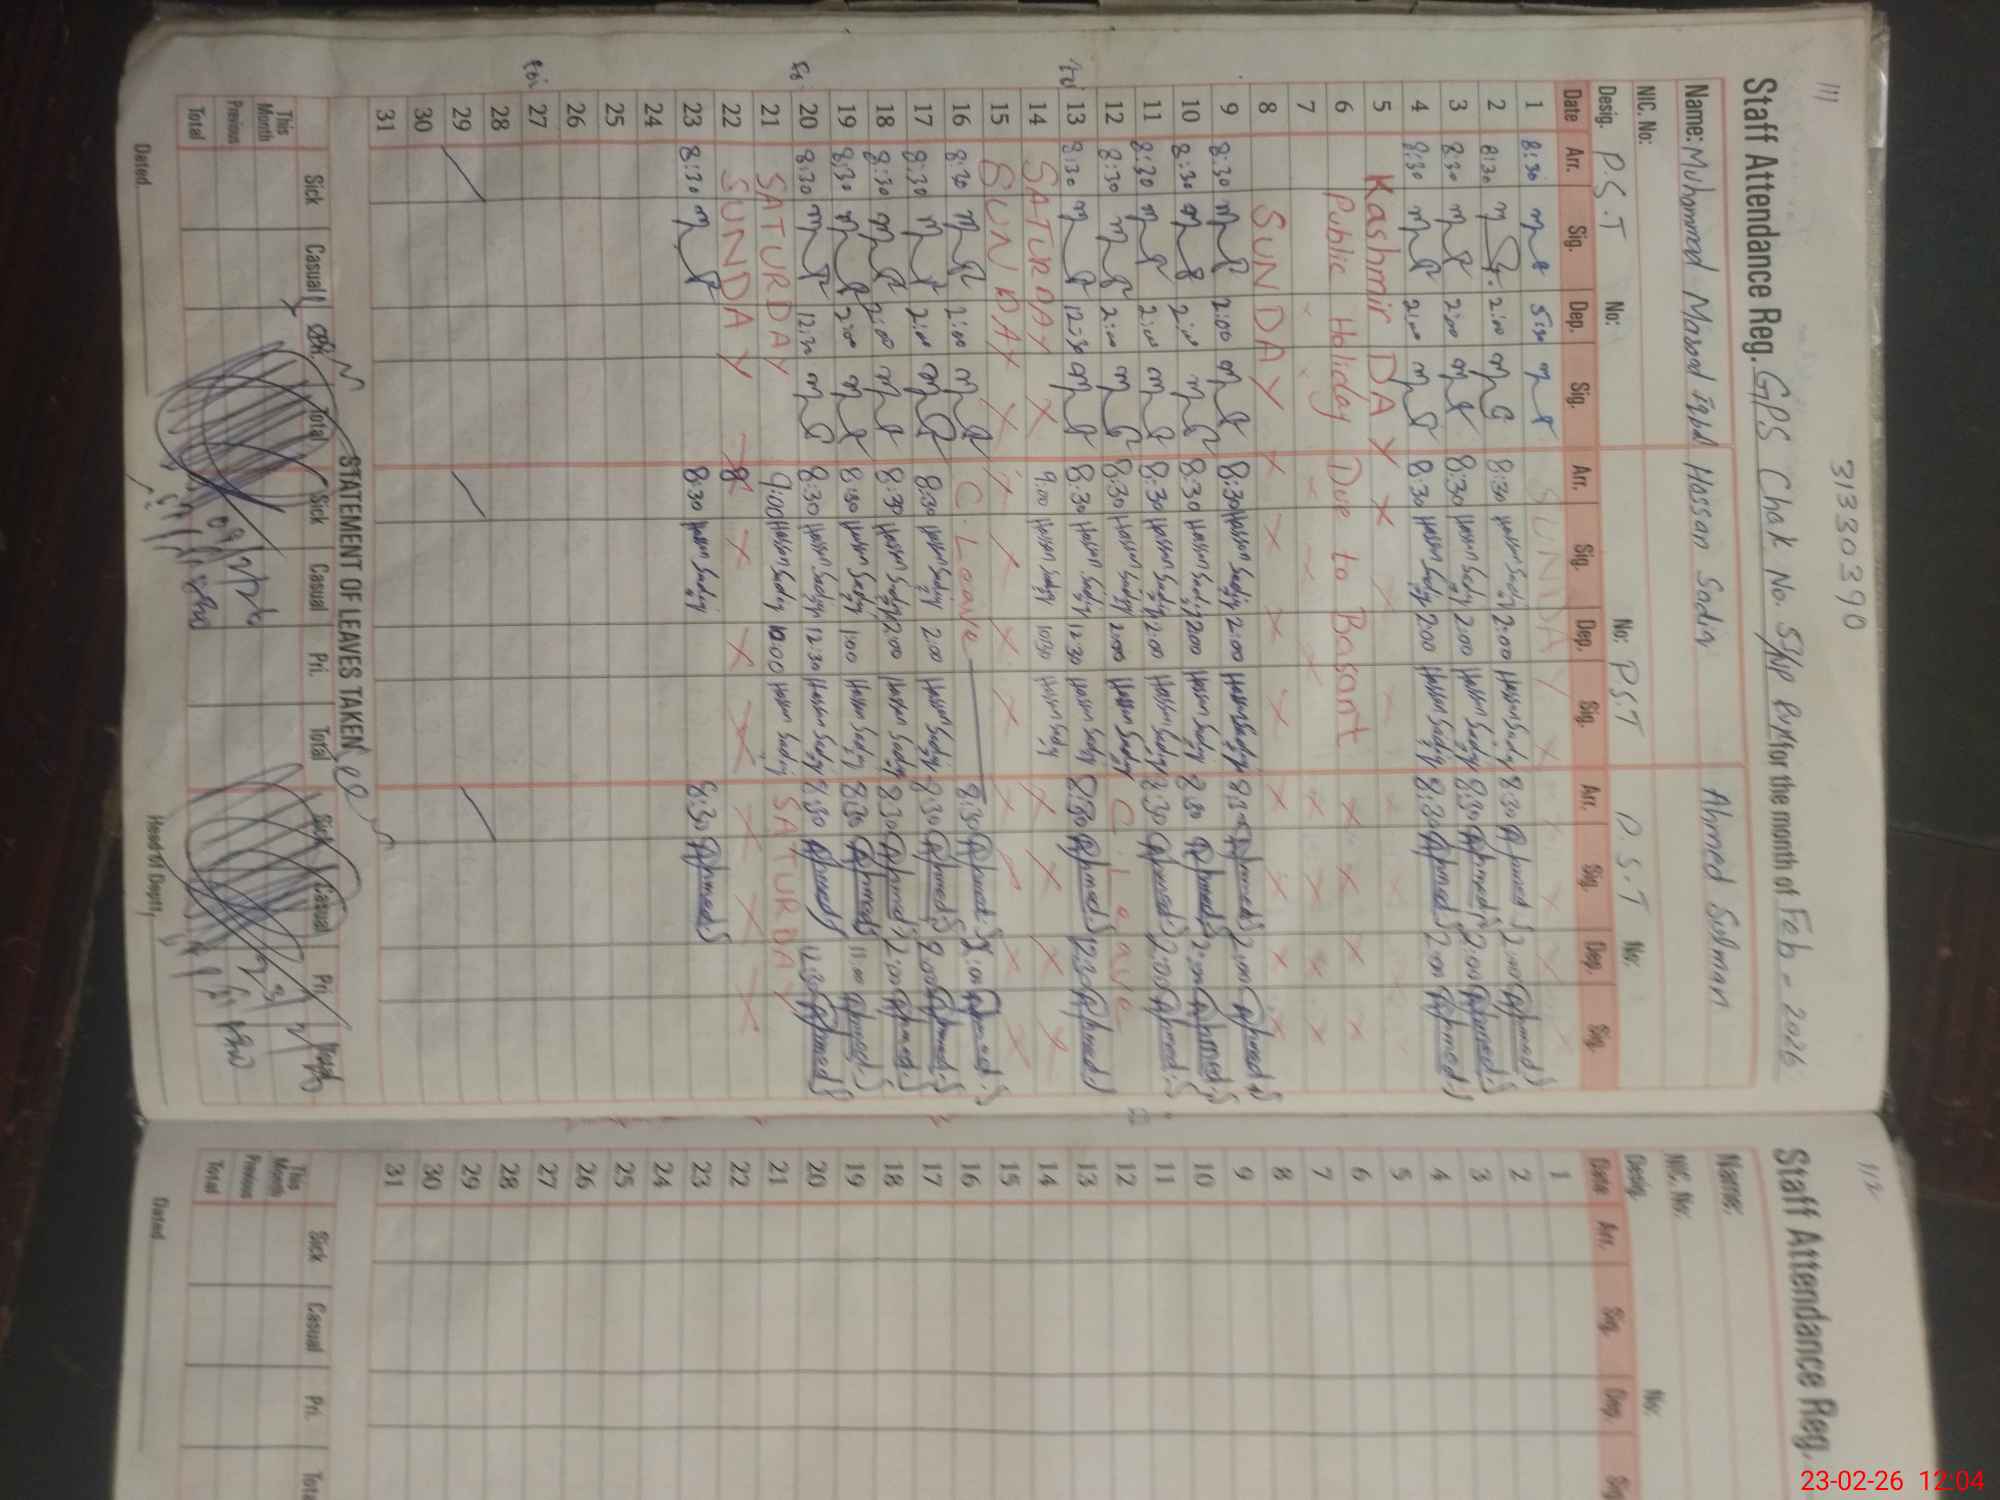 111
31330390
Staff Attendance Reg. GPS Chak No. 5/NP for the month of Feb - 2026
Name: Muhammad Masood Iqbal Hassan Sadiq Ahmed Salman
NIC. No:
Desig. P.S.T No: No: P.S.T P.S.T No:
Date Arr. Sig. Dep. Sig. Arr. Sig. Dep. Sig. Arr. Sig. Dep. Sig.
1 8:30 5:30 SUNDAY X X X X
2 8:30 2:00 8:30 Hassan Sadiq 2:00 Hassan Sadiq 8:30 Ahmed.S 2:00 Ahmed.S
3 8:30 2:00 8:30 Hassan Sadiq 2:00 Hassan Sadiq 8:30 Ahmed.S 2:00 Ahmed.S
4 8:30 2:00 8:30 Hassan Sadiq 2:00 Hassan Sadiq 8:30 Ahmed.S 2:00 Ahmed.S
5 Kashmir DAY X X X
6 Public Holiday Due to Basant X X X X
7 X X X X X X
8 SUNDAY X X X X X X X X
9 8:30 2:00 8:30 Hassan Sadiq 2:00 Hassan Sadiq 8:30 Ahmed.S 2:00 Ahmed.S
10 8:30 2:00 8:30 Hassan Sadiq 2:00 Hassan Sadiq 8:30 Ahmed.S 2:00 Ahmed.S
11 8:30 2:00 8:30 Hassan Sadiq 2:00 Hassan Sadiq 8:30 Ahmed.S 2:00 Ahmed.S
12 8:30 2:00 8:30 Hassan Sadiq 2:00 Hassan Sadiq C. Leave
13 8:30 12:30 8:30 Hassan Sadiq 12:30 Hassan Sadiq 8:30 Ahmed.S 12:30 Ahmed.S
14 SATURDAY X 9:00 Hassan Sadiq 10:30 Hassan Sadiq X X X X
15 SUNDAY X X X X X X X X
16 8:30 2:00 C. Leave 8:30 Ahmed.S 2:00 Ahmed.S
17 8:30 2:00 8:30 Hassan Sadiq 2:00 Hassan Sadiq 8:30 Ahmed.S 2:00 Ahmed.S
18 8:30 2:00 8:30 Hassan Sadiq 2:00 Hassan Sadiq 8:30 Ahmed.S 2:00 Ahmed.S
19 8:30 2:00 8:30 Hassan Sadiq 1:00 Hassan Sadiq 8:30 Ahmed.S 11:00 Ahmed.S
20 8:30 12:30 8:30 Hassan Sadiq 12:30 Hassan Sadiq 8:30 Ahmed.S 12:30 Ahmed.S
21 SATURDAY 9:00 Hassan Sadiq 10:00 Hassan Sadiq SATURDAY
22 SUNDAY X X X X X X X
23 8:30 8:30 Hassan Sadiq 8:30 Ahmed.S
24
25
26
27
28
29
30
31
STATEMENT OF LEAVES TAKEN
Sick Casual Total Sick Casual Pri. Total Sick Casual Pri.
This Month
Previous
Total
Dated Head of Deptt.
112
Staff Attendance Reg.
Name:
NIC. No:
Desig. No:
Date Arr. Sig. Dep. Sig.
1
2
3
4
5
6
7
8
9
10
11
12
13
14
15
16
17
18
19
20
21
22
23
24
25
26
27
28
29
30
31
Sick Casual Pri. Total
This Month
Previous
Total
Dated
23-02-26 12:04